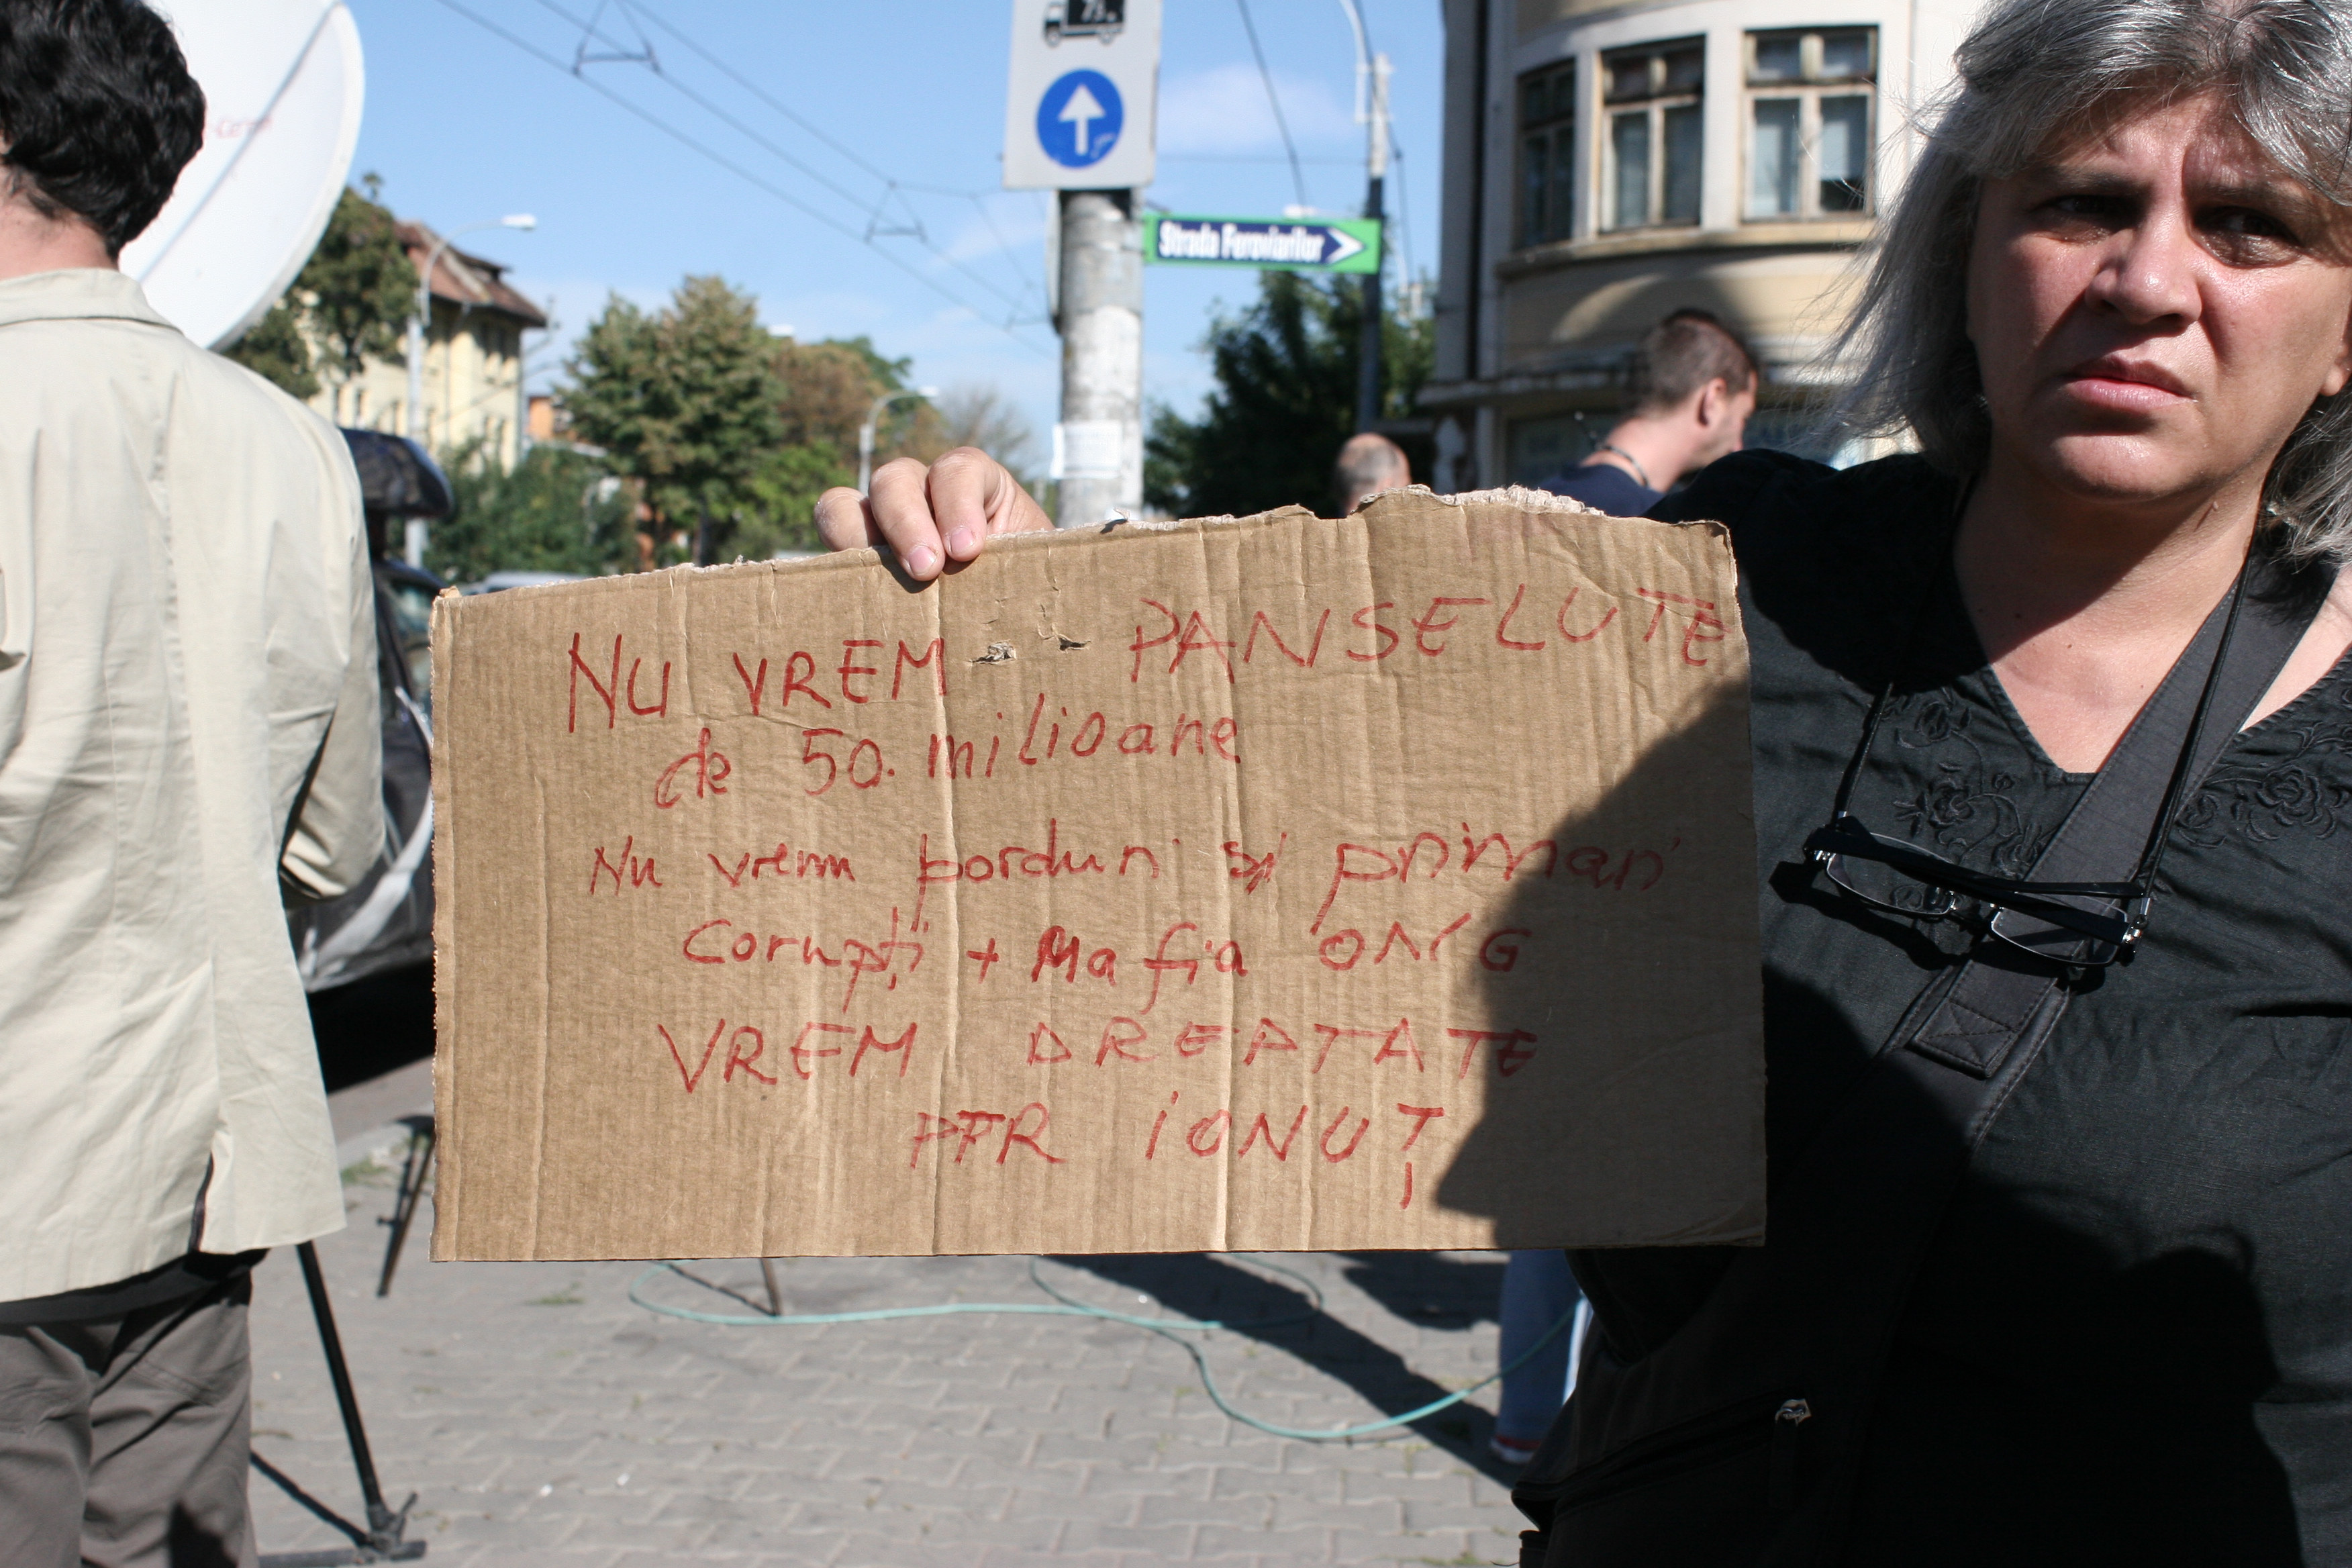 7,5 t
Strada Feroviarilor
NU VREM PANSELUTE
de 50. milioane
Nu vrem borduri și primari
Corupți + Mafia ONG
VREM DREPTATE
PTR IONUȚ